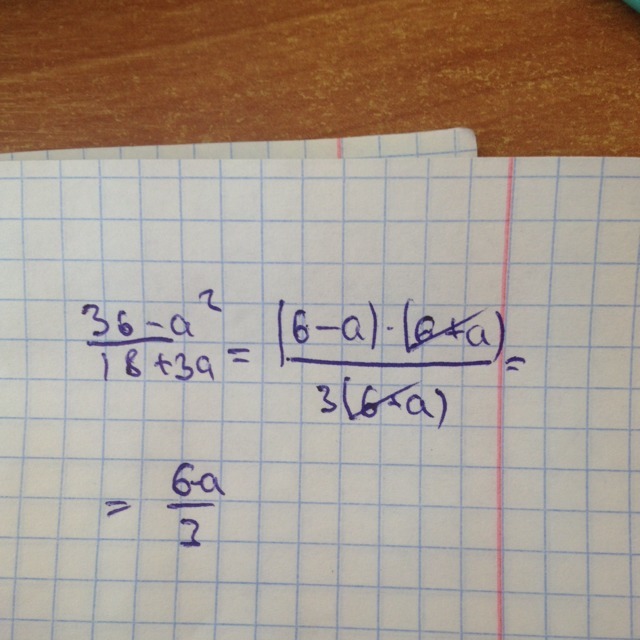 36-a² / 18+3a = (6-a)·(6+a) / 3(6+a) =
= 6-a / 3